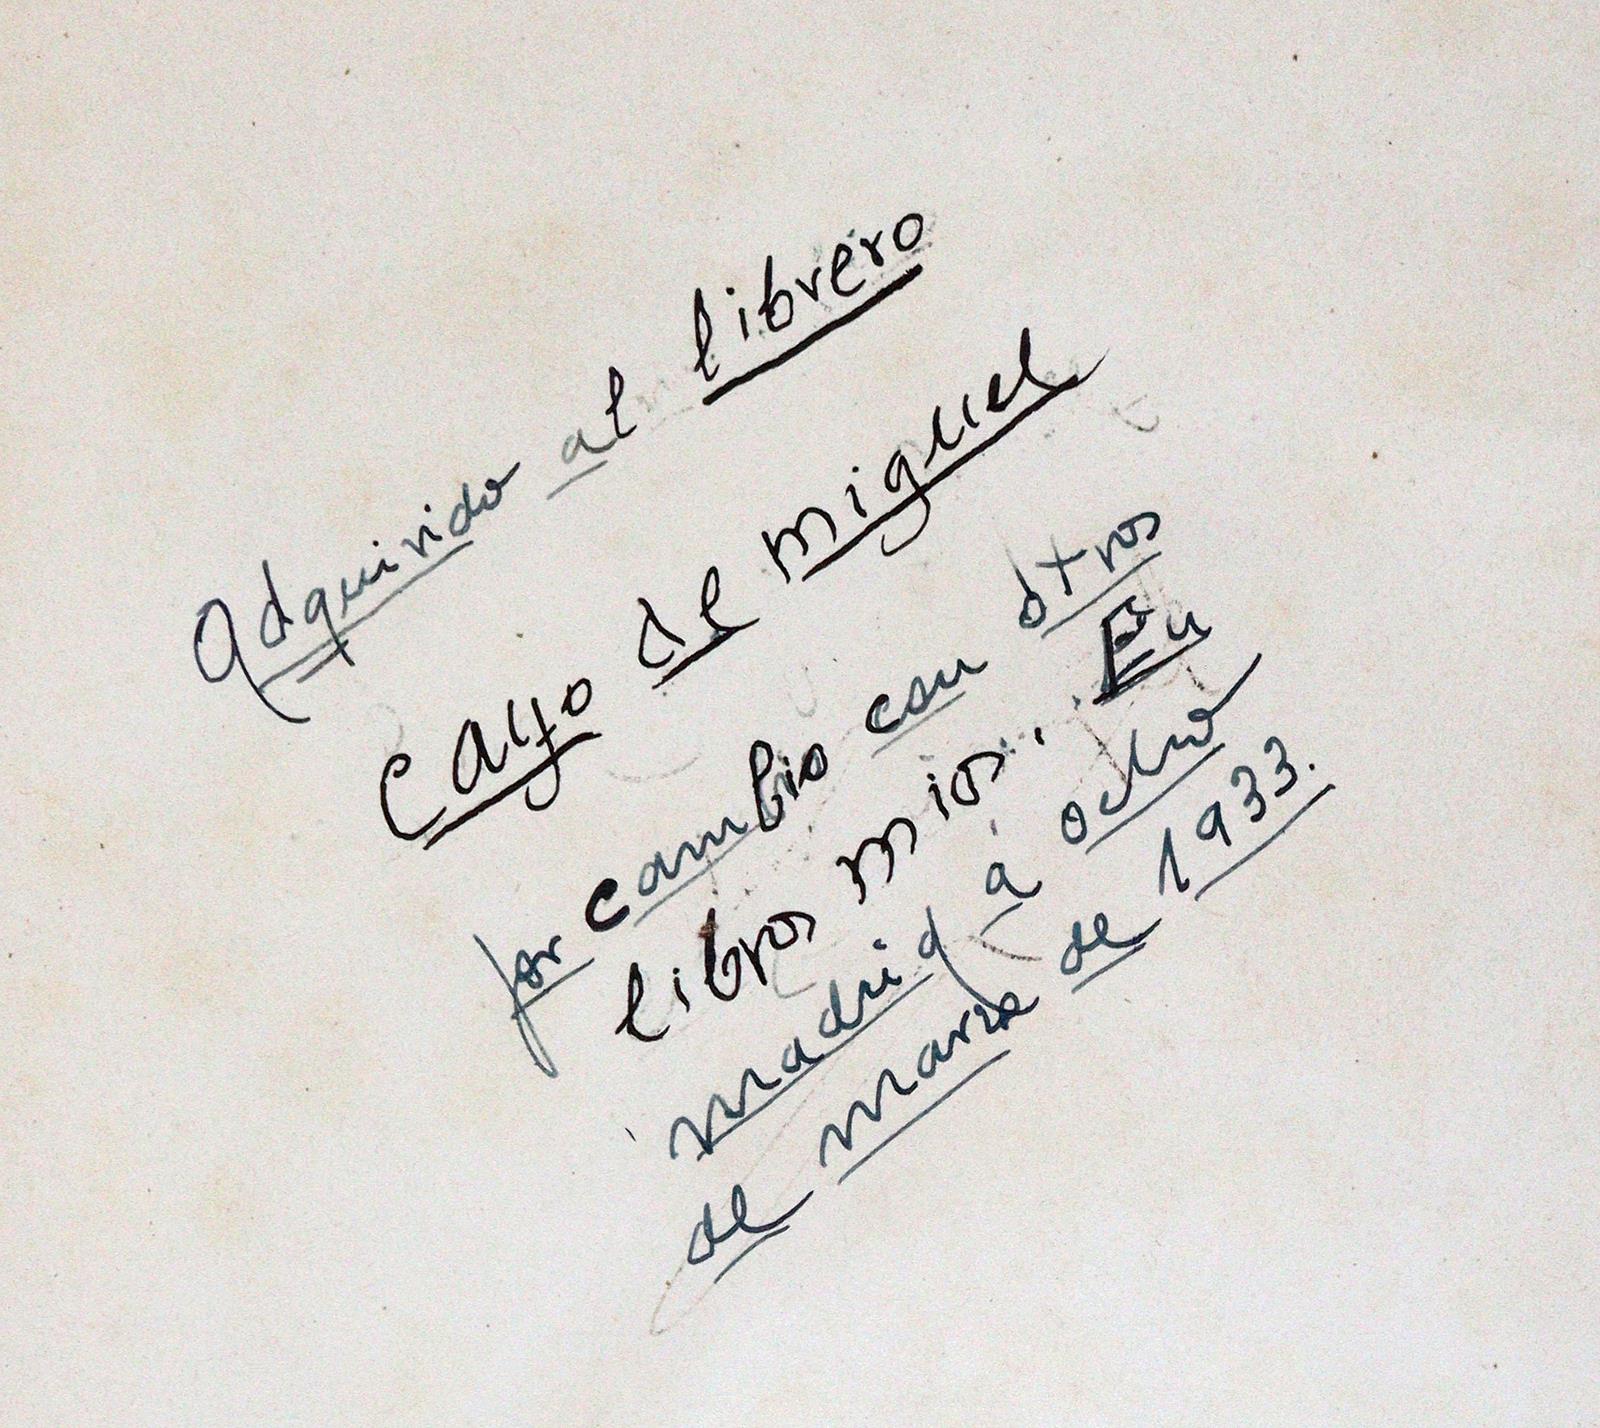 Adquirido al librero
Cayo de Miguel
por cambio con otros
libros mios. En
Madrid a ocho
de Marzo de 1933.